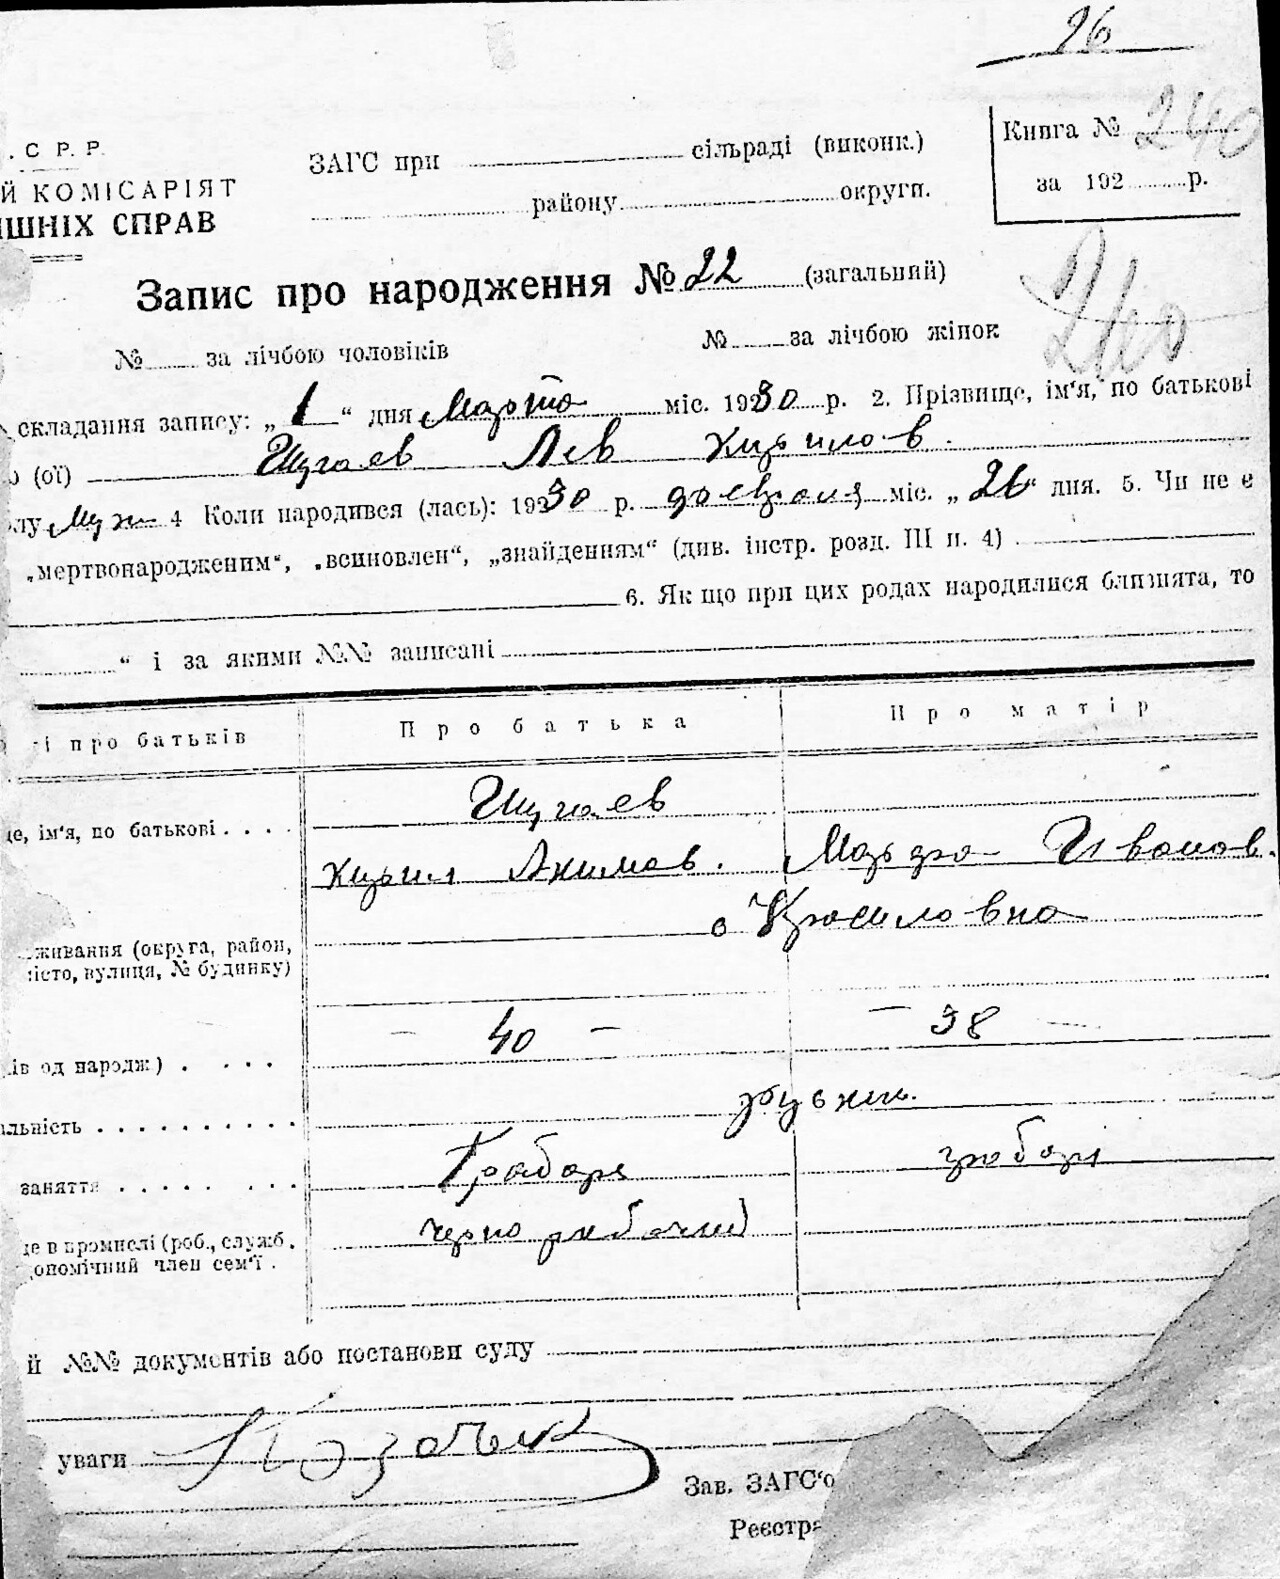 26
Книга № 240
за 192 р.
. С Р. Р.
Й КОМІСАРІЯТ
ІШНІХ СПРАВ
ЗАГС при сільраді (виконк.)
району округи.
Запис про народження № 22 (загальний)
240
№ за лічбою чоловіків № за лічбою жінок
складання запису: „ 1 “ дня Марта міс. 1930 р. 2. Прізвище, ім‘я, по батькові
о (ої) Шугаев Лев Кирилов.
лу Муж 4 Коли народився (лась): 1930 р. февраля міс. „ 26 “ дня. 5. Чи не є
„мертвонародженим“, „всиновлен“, „знайденням“ (див. інстр. розд. III п. 4)
6. Як що при цих родах народилися близнята, то
“ і за якими №№ записані
і про батьків Про батька Про матір
Шугаев
це, ім‘я, по батькові . . . .
Кирил Акимов. Иванов.
живання (округа, район,
місто, вулиця, № будинку)
с
ів од народж.) . . . . – 40 – – 38 –
альність . . . . . . . . . .
заняття . . . . . . . . Грабарь грабарі
це в промислі (роб., служб.
черно рабочий
ономічний член сем‘ї .
й №№ документів або постанови суду
уваги
Зав. ЗАГС‘о
Реєстра